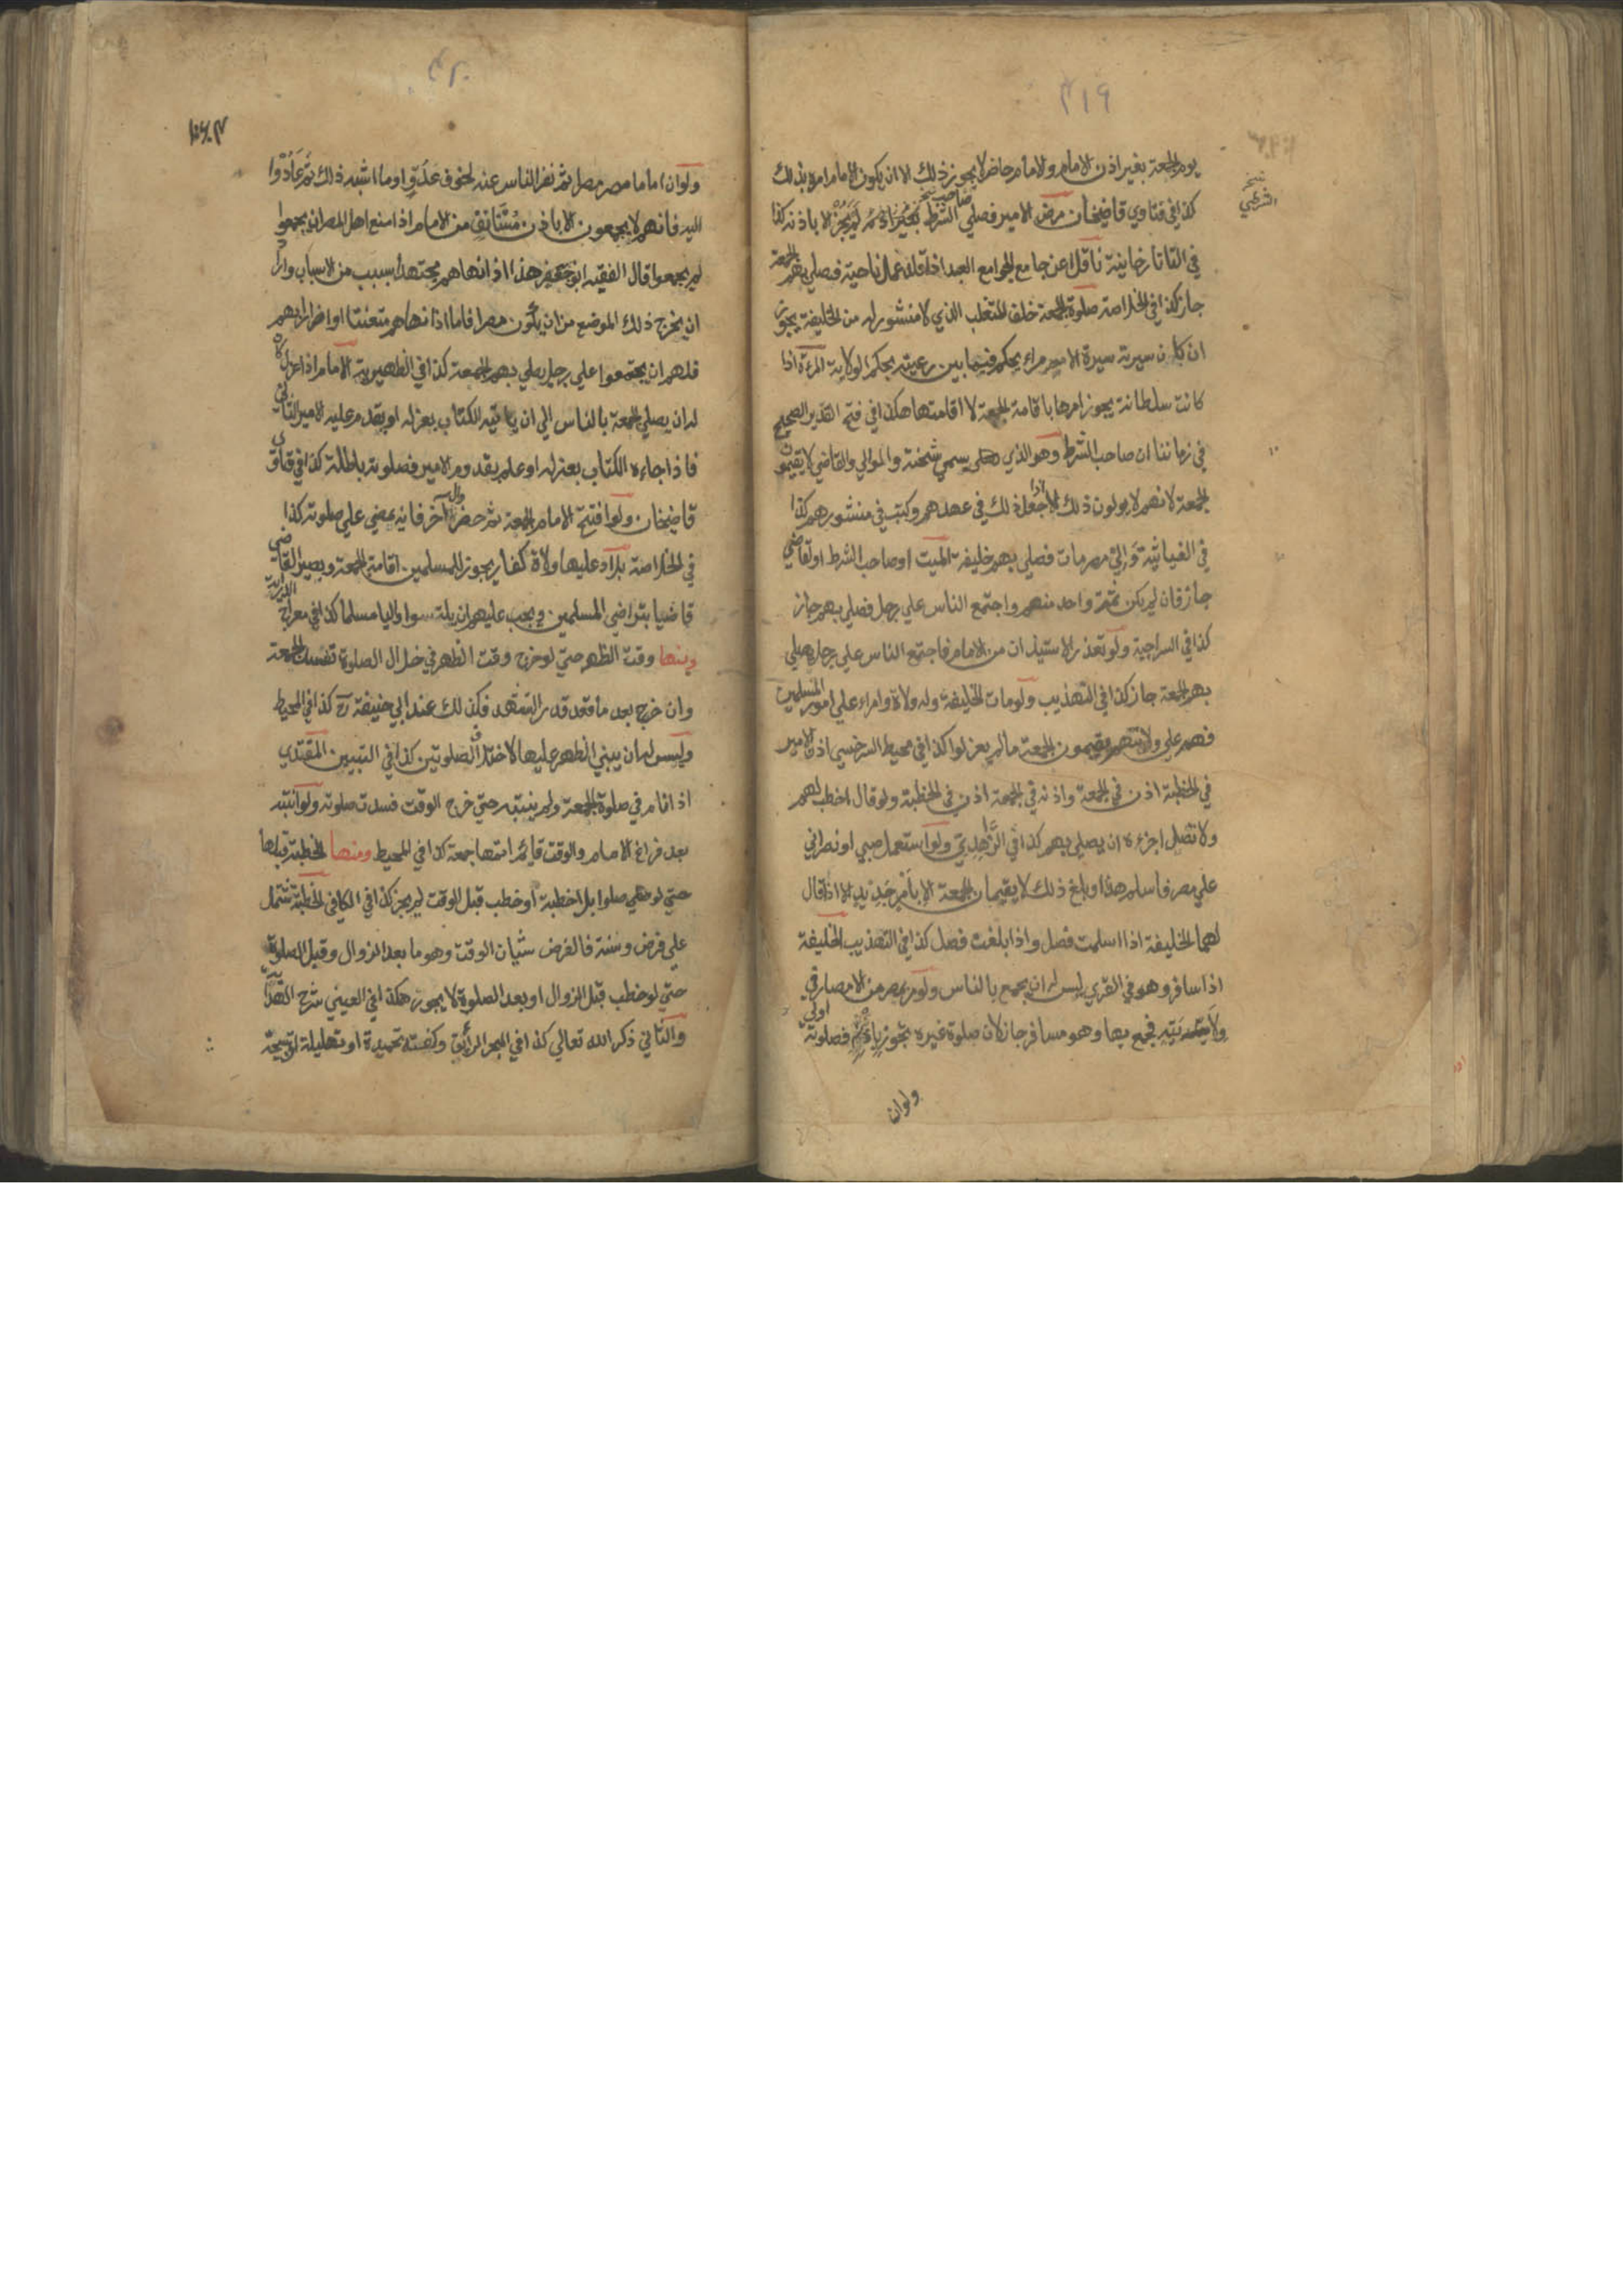 ٣١٩
يوم الجمعة بغير اذن الامام والامام حاضر لا يجوز ذلك الا ان يكون الامام امره بذلك
كذا في فتاوي قاضيخان مرض الامير فصلي صاحب الشرط بغير اذنه لم يجز الا باذنه كذا
في التاتارخانية ناقلا عن جامع الجوامع العبد اذا قلد عمل ناحية فصلي بهم الجمعة
جاز كذا في الخلاصة صلوة الجمعة خلف المتغلب الذي لا منشور له من الخليفة يجوز
ان كان سيرته سيرة الامراء يحكم فيما بين رعيته بحكم الولاية المرءة اذا
كانت سلطانة يجوز امرها باقامة الجمعة لا اقامتها هكذا في فتح القدير الصحيح
في زماننا ان صاحب الشرط وهو الذي يسمي شحنة والوالي والقاضي لا يقيمون
الجمعة لانهم لا يولون ذلك الا اذا جعل ذلك في عهدهم وكتب في منشورهم كذا
في الغياثية والي مصر مات فصلي بهم خليفة الميت او صاحب الشرط او القاضي
جاز فان لم يكن ثمة واحد منهم واجتمع الناس علي رجل فصلي بهم جاز
كذا في السراجية ولو تعذر الاستيذان من الامام فاجتمع الناس علي رجل يصلي
بهم الجمعة جاز كذا في التهذيب ولو مات الخليفة وله ولاة وامراء علي امور المسلمين
فهم علي ولايتهم يقيمون الجمعة ما لم يعزلوا كذا في محيط السرخسي اذن الامير
في الخطبة اذن في الجمعة واذنه في الجمعة اذن في الخطبة ولو قال اخطب لهم
ولا تصل اجزءه ان يصلي بهم كذا في الزاهدي ولو استعمل صبي او نصراني
علي مصر فاسلم هذا وبلغ ذلك لا يقيمان الجمعة الا بامر جديد الا اذا قال
لهما الخليفة اذا اسلمت فصل واذا بلغت فصل كذا في التهذيب الخليفة
اذا سافر وهو في القري ليس له ان يجمع بالناس ولو مر بمصر من الامصار في
ولايته فجمع بها وهو مسافر جاز لان صلوة غيره تجوز بامره فصلوته اولي
ولو ان
ولو ان اماما مصر مصرا ثم نفر الناس عنه لخوف عدو او ما اشبه ذلك ثم عادوا
اليه فانهم لا يجمعون الا باذن مستانف من الامام اذا منع اهل المصر ان يجمعوا
لم يجمعوا قال الفقيه ابو جعفر هذا اذا نهاهم مجتهدا بسبب من الاسباب واراد
ان يخرج ذلك الموضع من ان يكون مصرا فاما اذا نهاهم متعنتا او اضرارا بهم
فلهم ان يجتمعوا علي رجل يصلي بهم الجمعة كذا في الظهيرية الامام اذا عزل كان
له ان يصلي الجمعة بالناس الي ان ياتيه الكتاب بعزله او يقدم عليه الامير الثاني
فاذا جاءه الكتاب بعزله او علم بقدوم الامير فصلوته باطلة كذا في فتاوي
قاضيخان ولو افتتح الامام الجمعة ثم حضر وال آخر فانه يمضي علي صلوته كذا
في الخلاصة بلاد عليها ولاة كفار يجوز للمسلمين اقامة الجمعة ويصير القاضي
قاضيا بتراضي المسلمين ويجب عليهم ان يلتمسوا واليا مسلما كذا في معراج الدراية
ومنها وقت الظهر حتي لو خرج وقت الظهر في خلال الصلوة تفسد الجمعة
وان خرج بعد ما قعد قدر التشهد فكذلك عند ابي حنيفة رح كذا في المحيط
وليس له ان يبني الظهر عليها لاختلاف الصلوتين كذا في التبيين المقتدي
اذا نام في صلوة الجمعة ولم ينتبه حتي خرج الوقت فسدت صلوته ولو انتبه
بعد فراغ الامام والوقت قائم اتمها جمعة كذا في المحيط ومنها الخطبة قبلها
حتي لو صلوا بلا خطبة او خطب قبل الوقت لم يجز كذا في الكافي الخطبة تشتمل
علي فرض وسنة فالفرض شيئان الوقت وهو ما بعد الزوال وقبل الصلوة
حتي لو خطب قبل الزوال او بعد الصلوة لا يجوز هكذا في العيني شرح الهداية
والثاني ذكر الله تعالي كذا في البحر الرائق وكفت تحميدة او تهليلة او تسبيحة